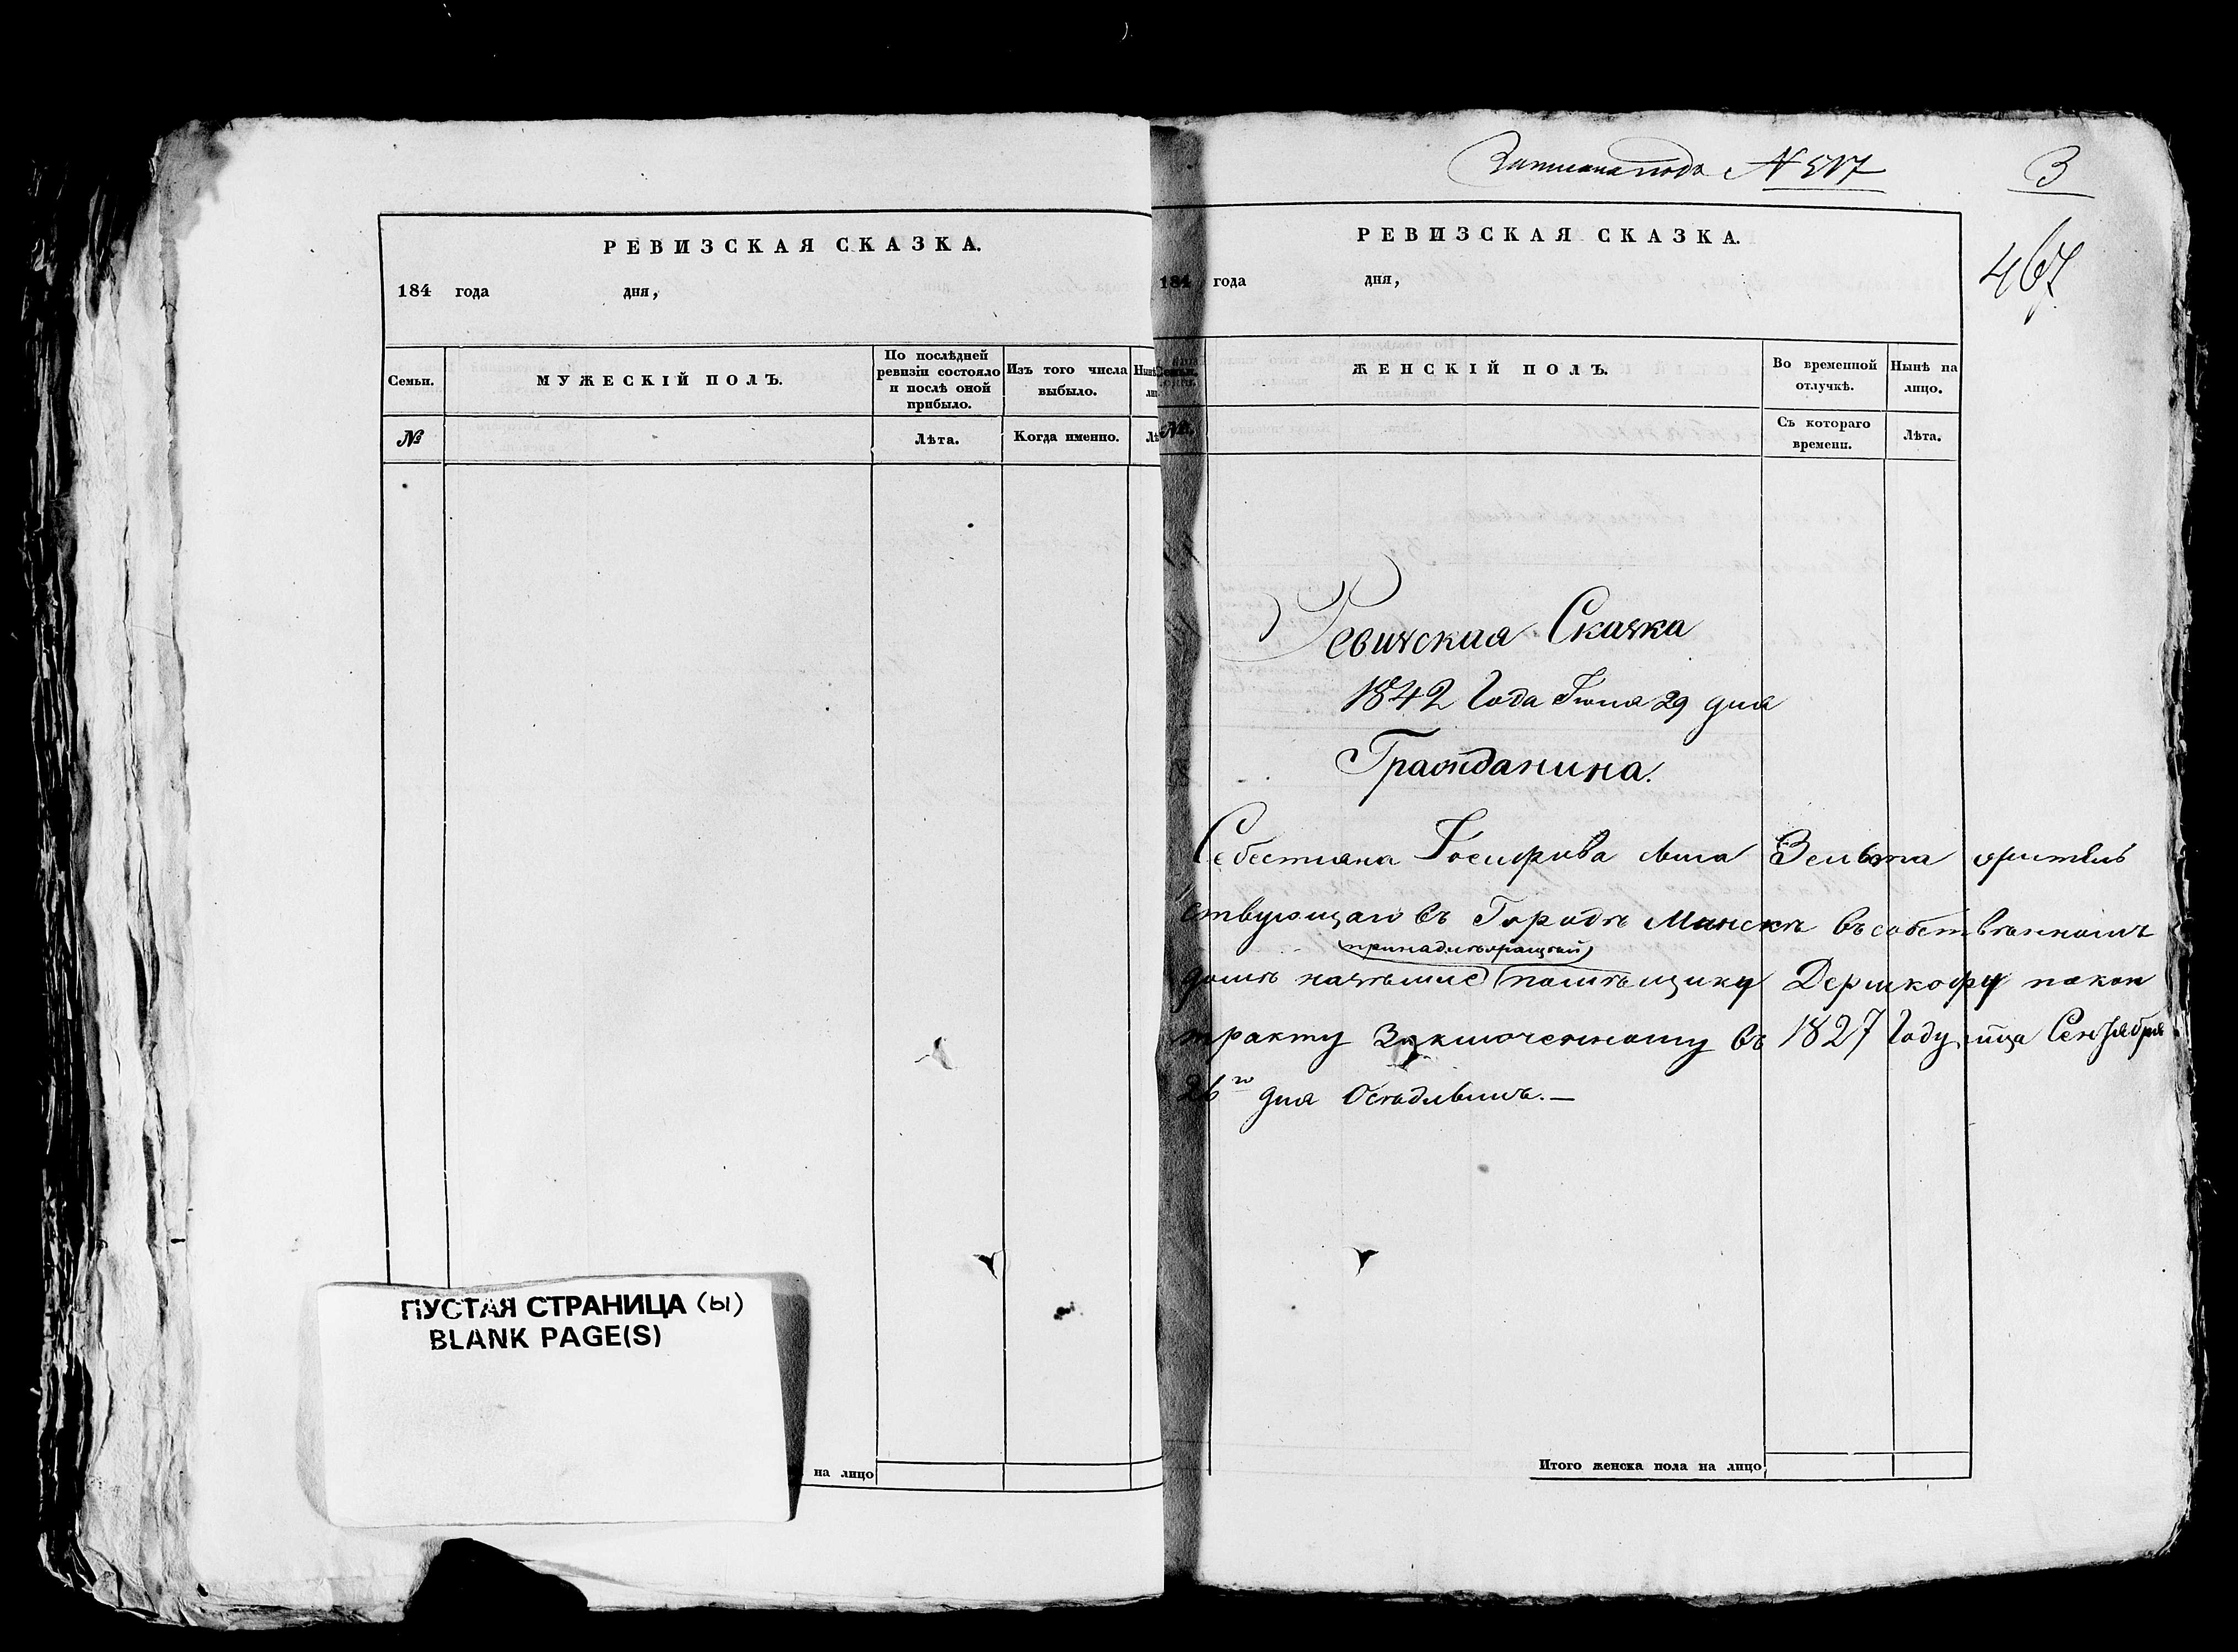 РЕВИЗСКАЯ СКАЗКА.
184 года дня,
Семьи. МУЖЕСКІЙ ПОЛЪ. По послѣдней ревизіи состояло и послѣ оной прибыло. Изъ того числа выбыло.
№ Лѣта. Когда именно.
ПУСТАЯ СТРАНИЦА (ы)
BLANK PAGE(S)
на лицо
Записана подъ N 517
3
467
РЕВИЗСКАЯ СКАЗКА.
184 года дня,
Семьи. ЖЕНСКІЙ ПОЛЪ. Во временной отлучкѣ. Нынѣ на лицо.
№ Съ котораго времени. Лѣта.
Ревизская Сказка
1842 Года Іюня 29 дня
Гражданина.
Себестиана Іосифова сына жител
ствующаго въ Городѣ Минскѣ въ собственномъ
принадлежащей
домѣ на землѣ помѣщику по кон
тракту Заключенному въ 1827 Году мца Сентября
26го дня Осѣдлымъ.—
Итого женска пола на лицо